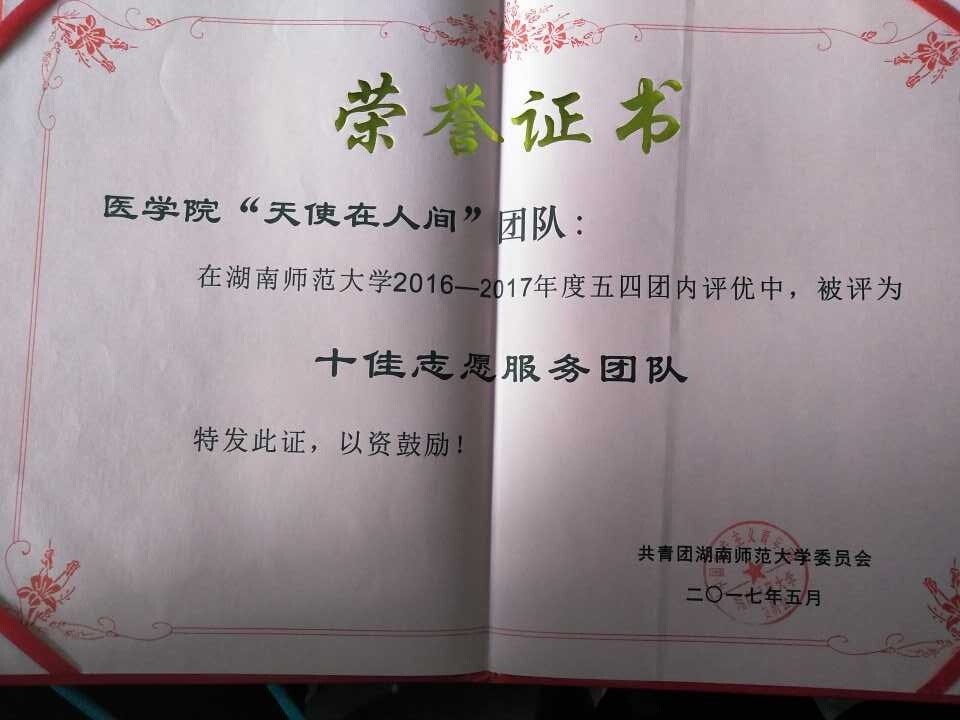 荣誉证书
医学院“天使在人间”团队：
在湖南师范大学2016—2017年度五四团内评优中，被评为
十佳志愿服务团队
特发此证，以资鼓励！
共青团湖南师范大学委员会
二〇一七年五月